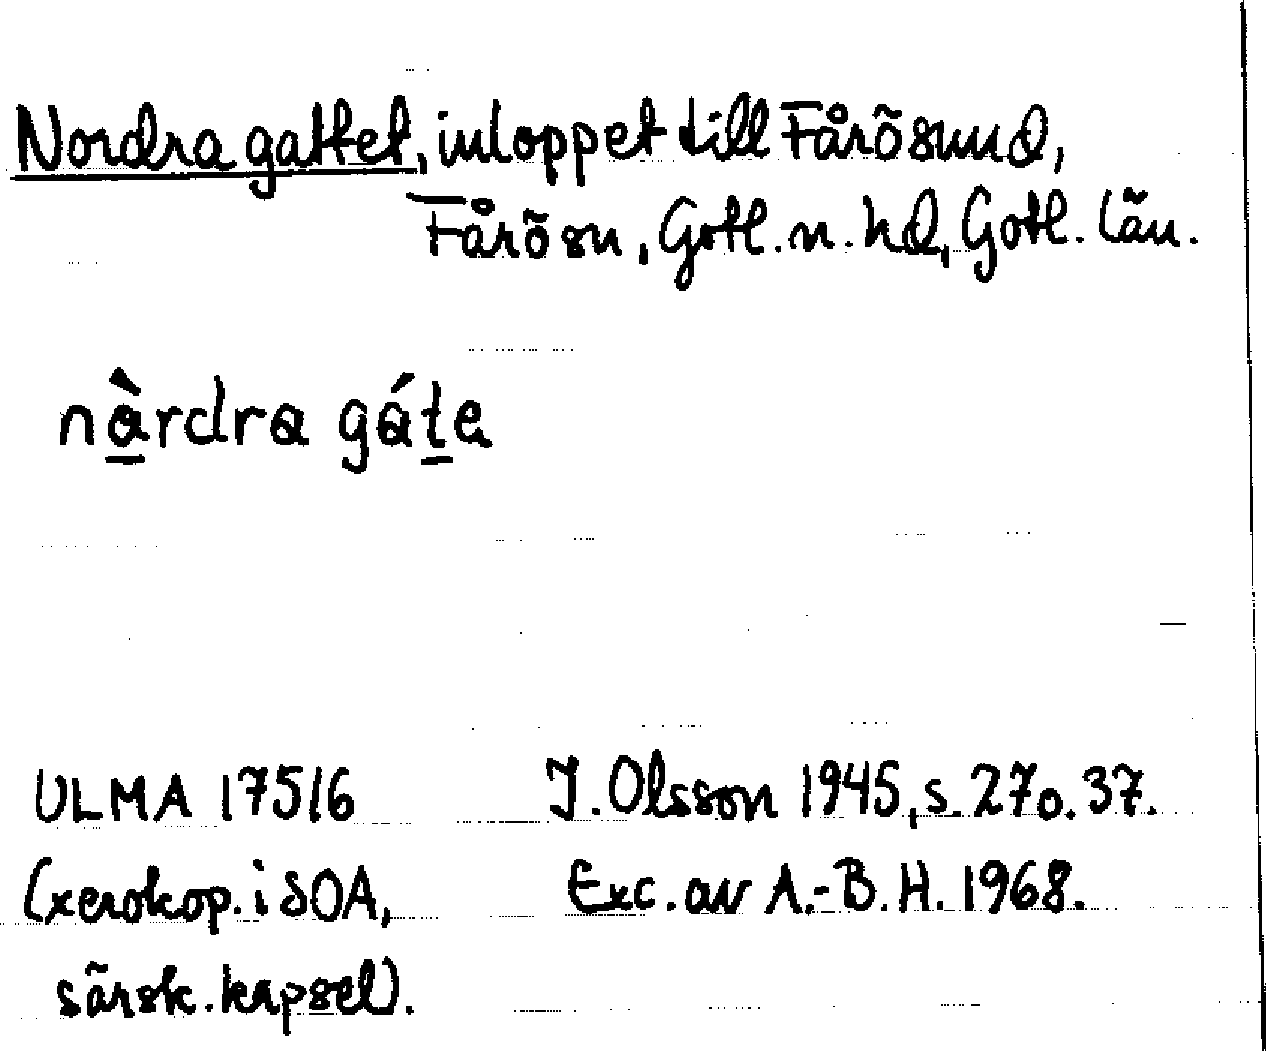 Nordra gattet, inloppet till Fårösund,
Fårö sn, Gotl. n. hd, Gotl. län.
nàrdra gáte
ULMA 17516 J. Olsson 1945, s. 27 o. 37.
(xerokop. i SOA, Exc. av A.-B. H. 1968.
särsk. kapsel).